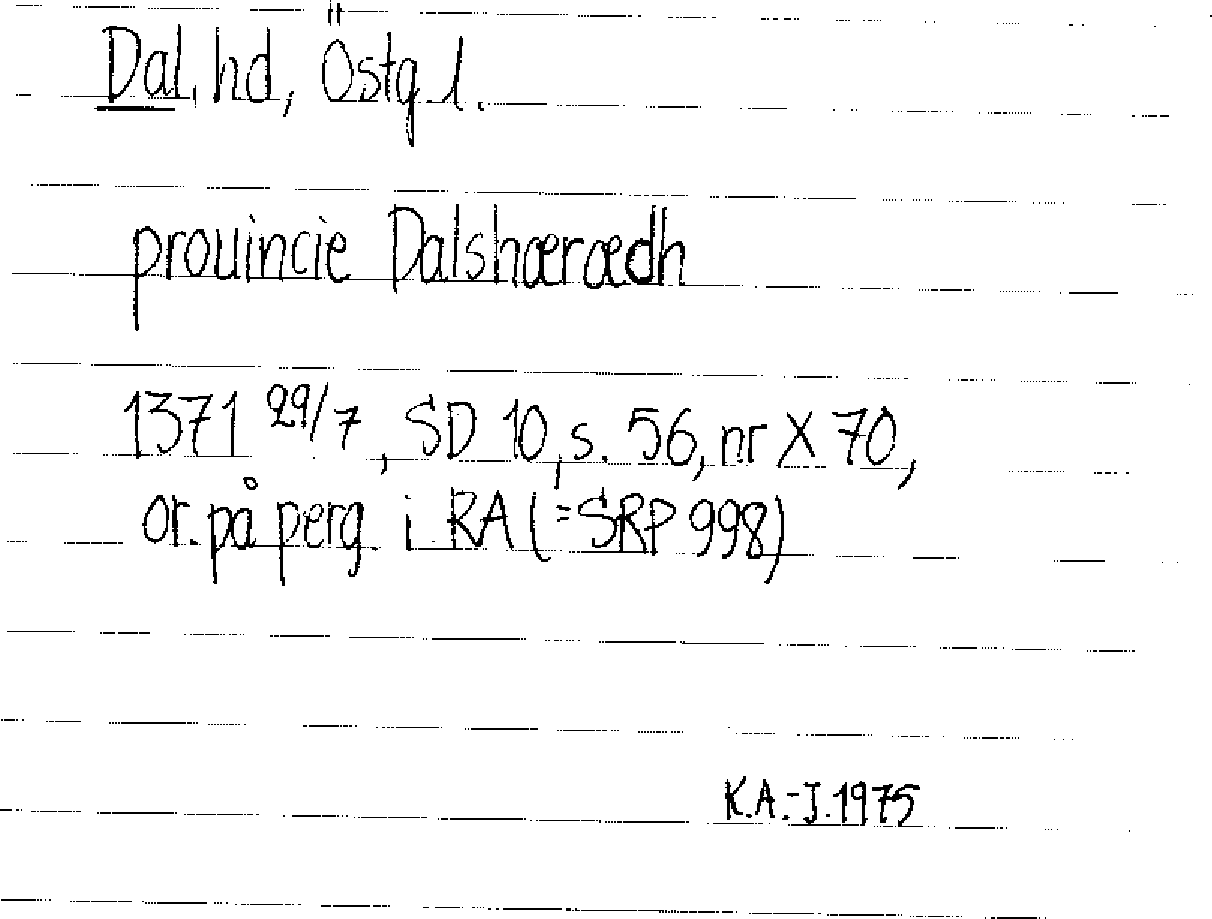 Dal, hd, Östg l.
prouincie Dalshæræedh
1371 29/7, SD 10, s. 56, nr X 70,
or. på perg. i RA (=SRP 998)
K.A.-J. 1975